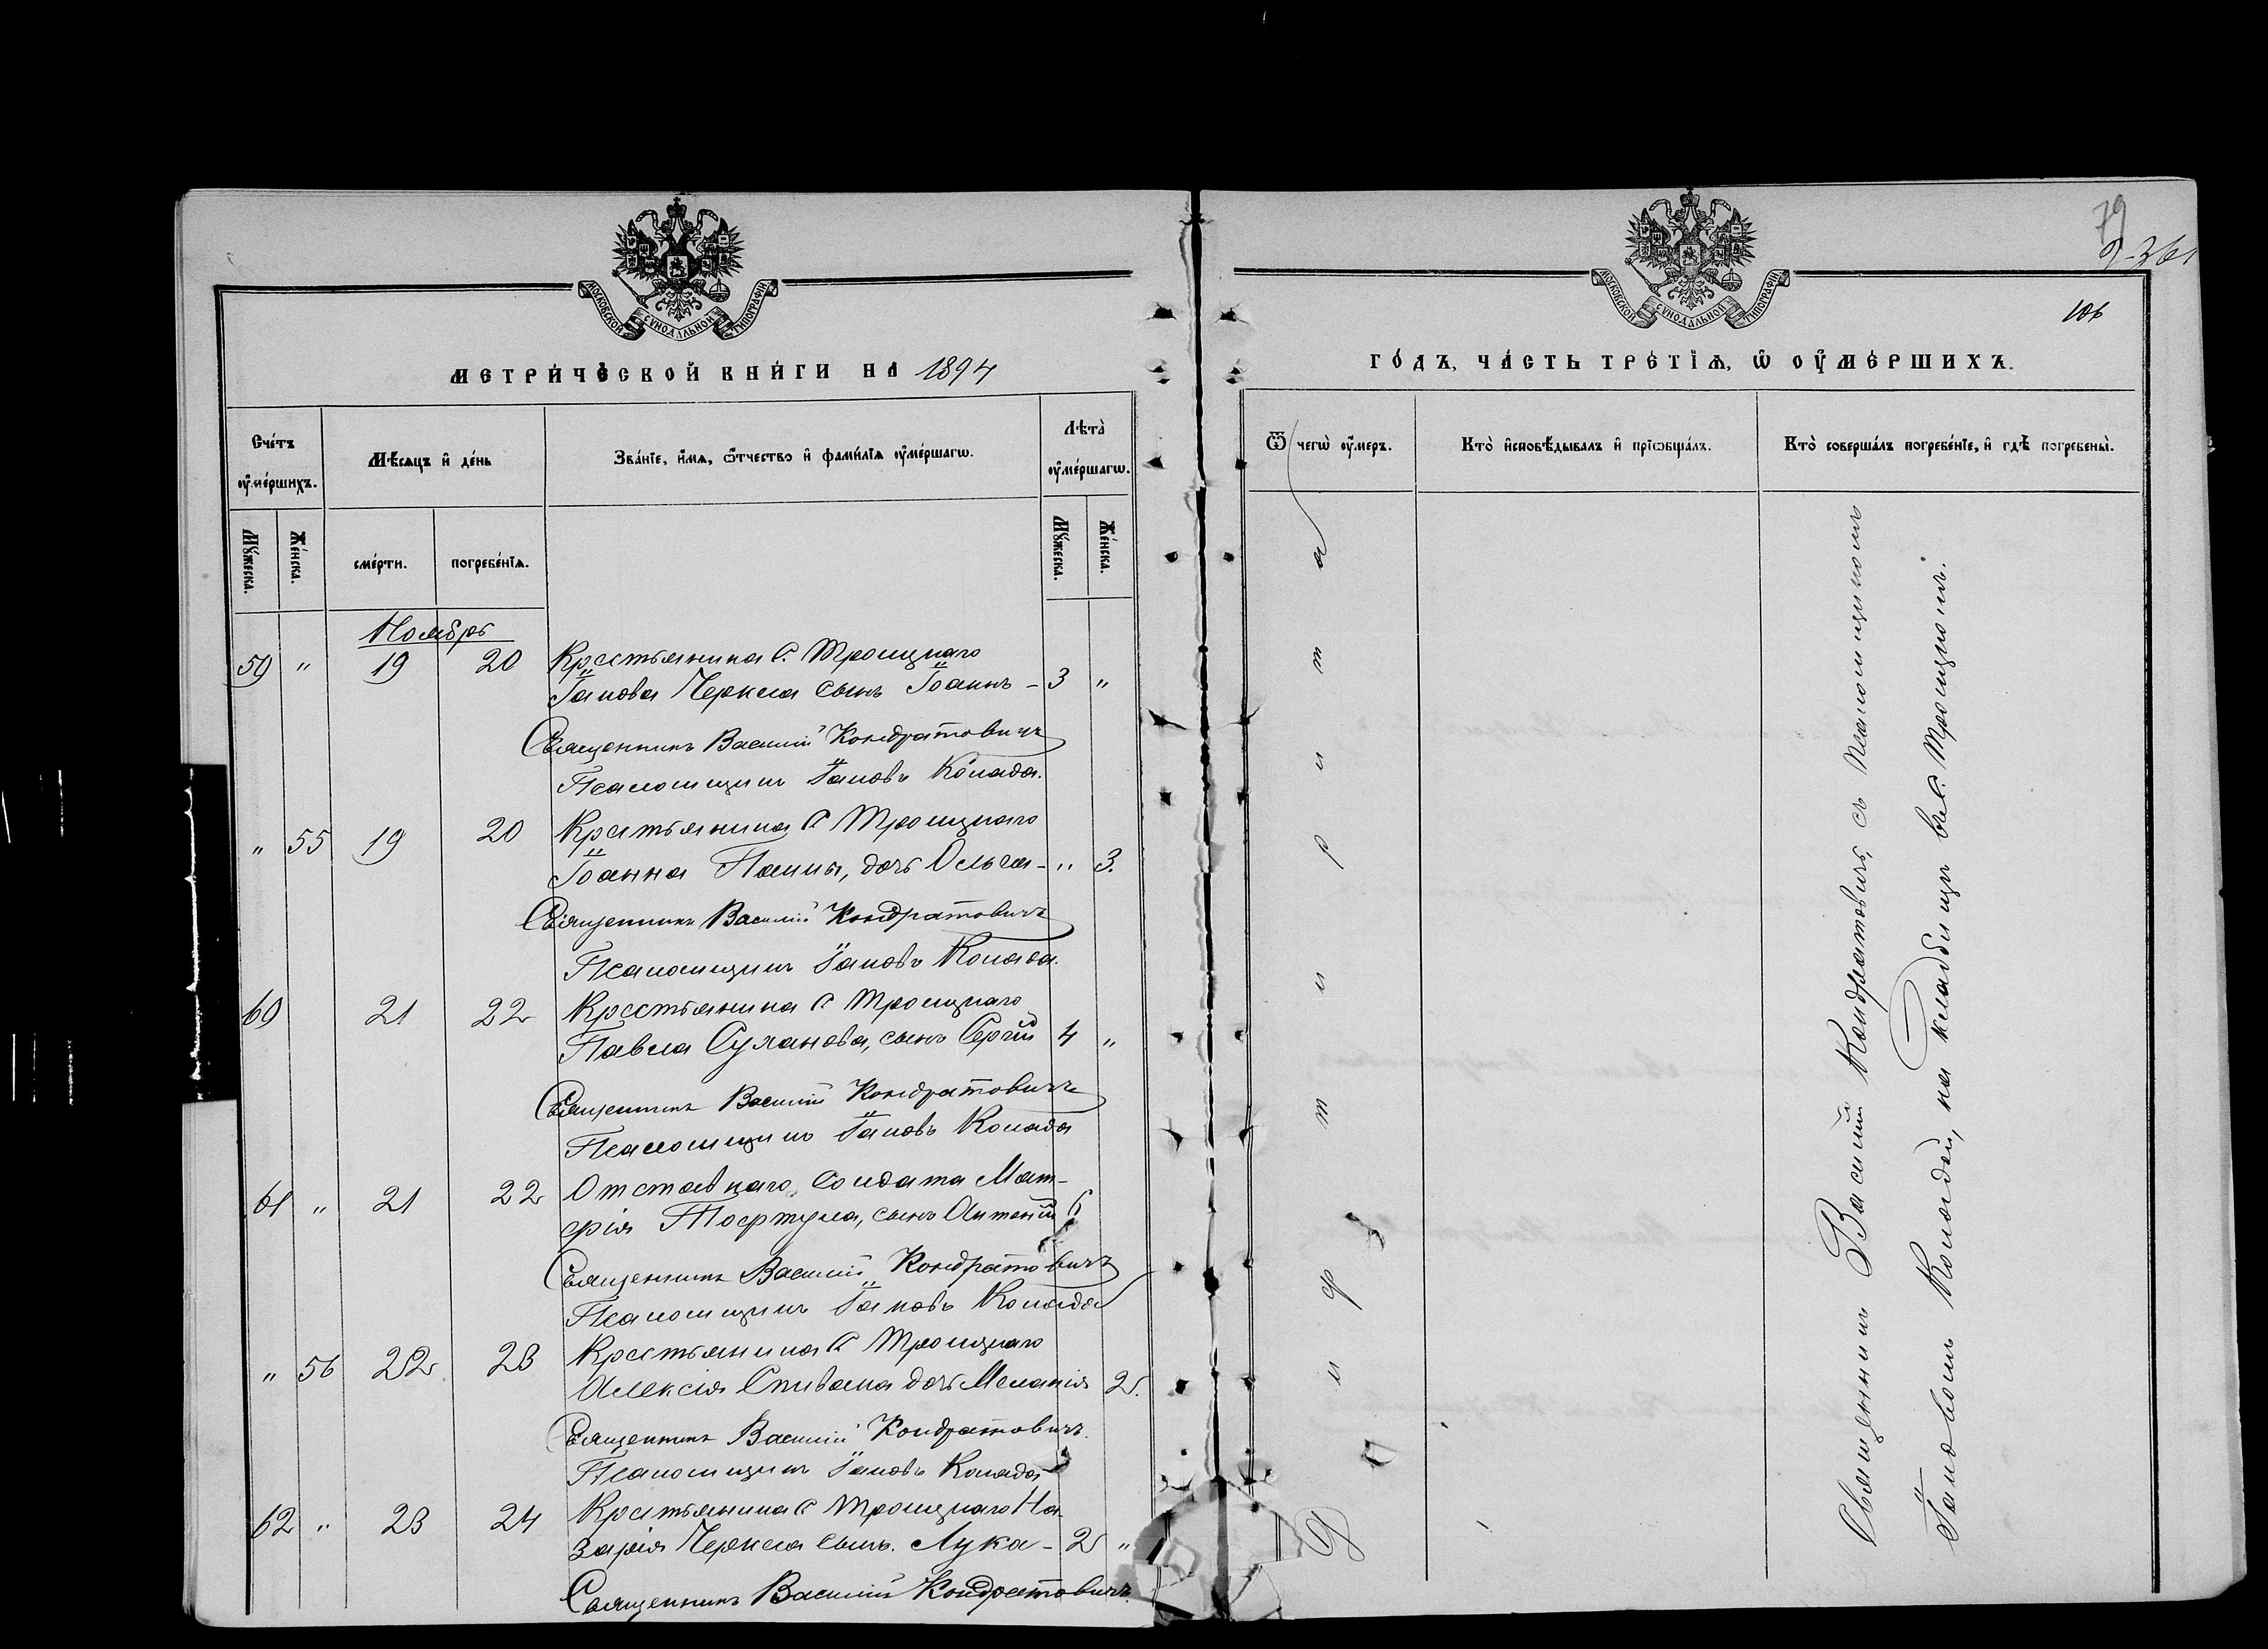 МОСКОВСКОЙ СѴНОДАЛЬНОЙ ТИПОГРАФІИ
МЕТРИ́ЧЕСКОЙ КНИ́ГИ НА 1894
Сче́тъ ѹ҆ме́ршихъ.
Мѣ́сяцъ и҆ де́нь
Зва́нїе, и҆́мѧ, ѻ҆́тчество и҆ фами́лїѧ ѹ҆ме́ршагѡ.
Лѣ́та ѹ҆ме́ршагѡ.
Мꙋ́жеска.
Же́нска.
сме́рти.
погребе́нїѧ.
Мꙋ́жеска.
Же́нска.
Ноябрь
59 " 19 20 Крестьянина С. Троицкаго
Іакова Черкеса сынъ Іоаннъ - 3 "
Священникъ Василій Кондратовичъ
Псаломщикъ Іаковъ Коляда.
" 55 19 20 Крестьянина С Троицкаго
Іоанна Паши, дочь Ольга - " 3.
Священникъ Василій Кондратовичъ
Псаломщикъ Іаковъ Коляда.
60 21 22 Крестьянина С Троицкаго
Павла Суханова, сынъ Сергій 4 "
Священникъ Василій Кондратовичъ
Псаломщикъ Іаковъ Коляда
61 " 21 22 Отставнаго Солдата Мат-
фія сынъ Антоній 6
Священникъ Василій Кондратовичъ
Псаломщикъ Іаковъ Коляда
" 56 22 23 Крестьянина С Троицкаго
Алексія Спивака дочь Меланія 2.
Священникъ Василій Кондратовичъ.
Псаломщикъ Іаковъ Коляда
62 " 23 24 Крестьянина С Троицкаго На-
зарія Черкеса сынъ. Лука - 2 "
Священникъ Василій Кондратовичъ.
79
106
МОСКОВСКОЙ СѴНОДАЛЬНОЙ ТИПОГРАФІИ
ГО́ДЪ, ЧА́СТЬ ТРЕ́ТЇѦ, Ѡ҆ ОУ҆МЕ́РШИХЪ.
Ѿ чегѡ̀ ѹ҆́меръ.
Кто̀ и҆сповѣ́дывалъ и҆ прїѡбща́лъ.
Кто̀ соверша́лъ погребе́нїе, и҆ гдѣ̀ погребены̀.
Дифтирита
Священникъ Василій Кондратовичъ, съ псаломщикомъ
Іаковомъ Колядой, на кладбищѣ въ С. Троицкомъ.